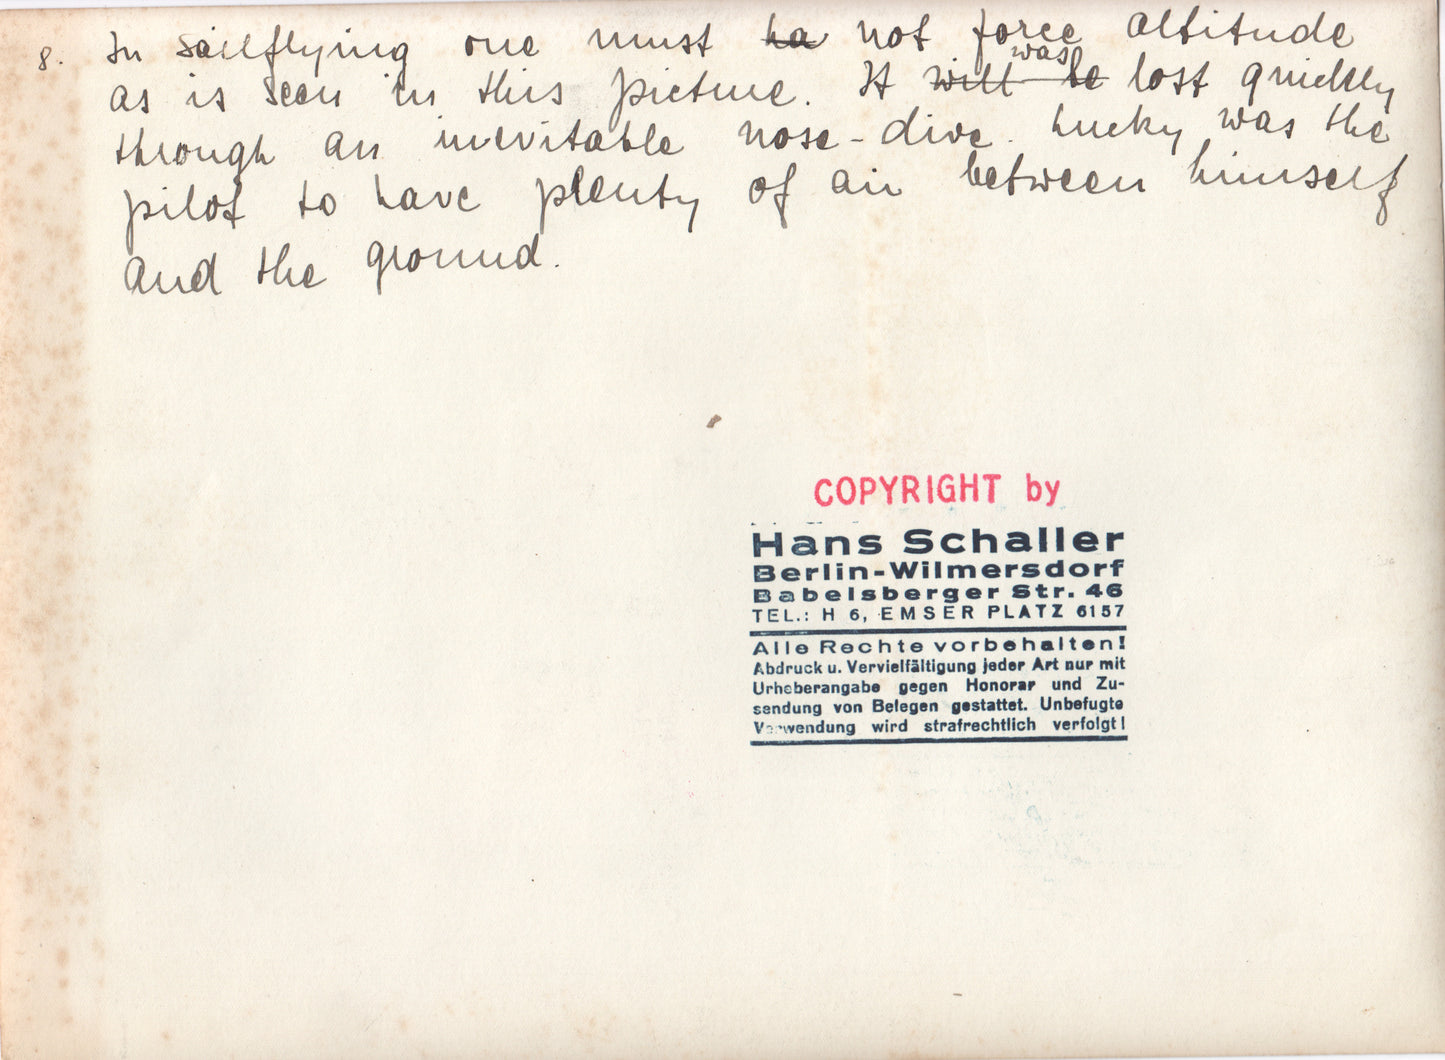 8. In sailflying one must ha not force altitude
as is seen in this picture. It will be was lost quickly
through an inevitable nose-dive. Lucky was the
pilot to have plenty of air between himself
and the ground.
COPYRIGHT by
Hans Schaller
Berlin-Wilmersdorf
Babelsberger Str. 46
TEL.: H 6, EMSER PLATZ 6157
Alle Rechte vorbehalten!
Abdruck u. Vervielfältigung jeder Art nur mit
Urheberangabe gegen Honorar und Zu-
sendung von Belegen gestattet. Unbefugte
Verwendung wird strafrechtlich verfolgt!